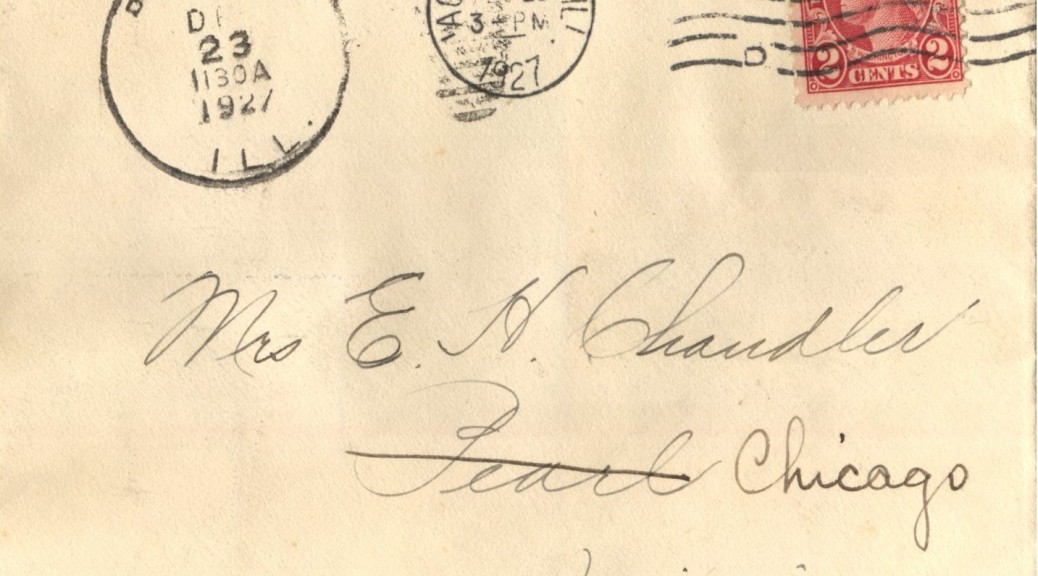 23
1130A
1927
ILL.
3 PM
1927
D
2 CENTS 2
Mrs E. H. Chandler
Pearl Chicago